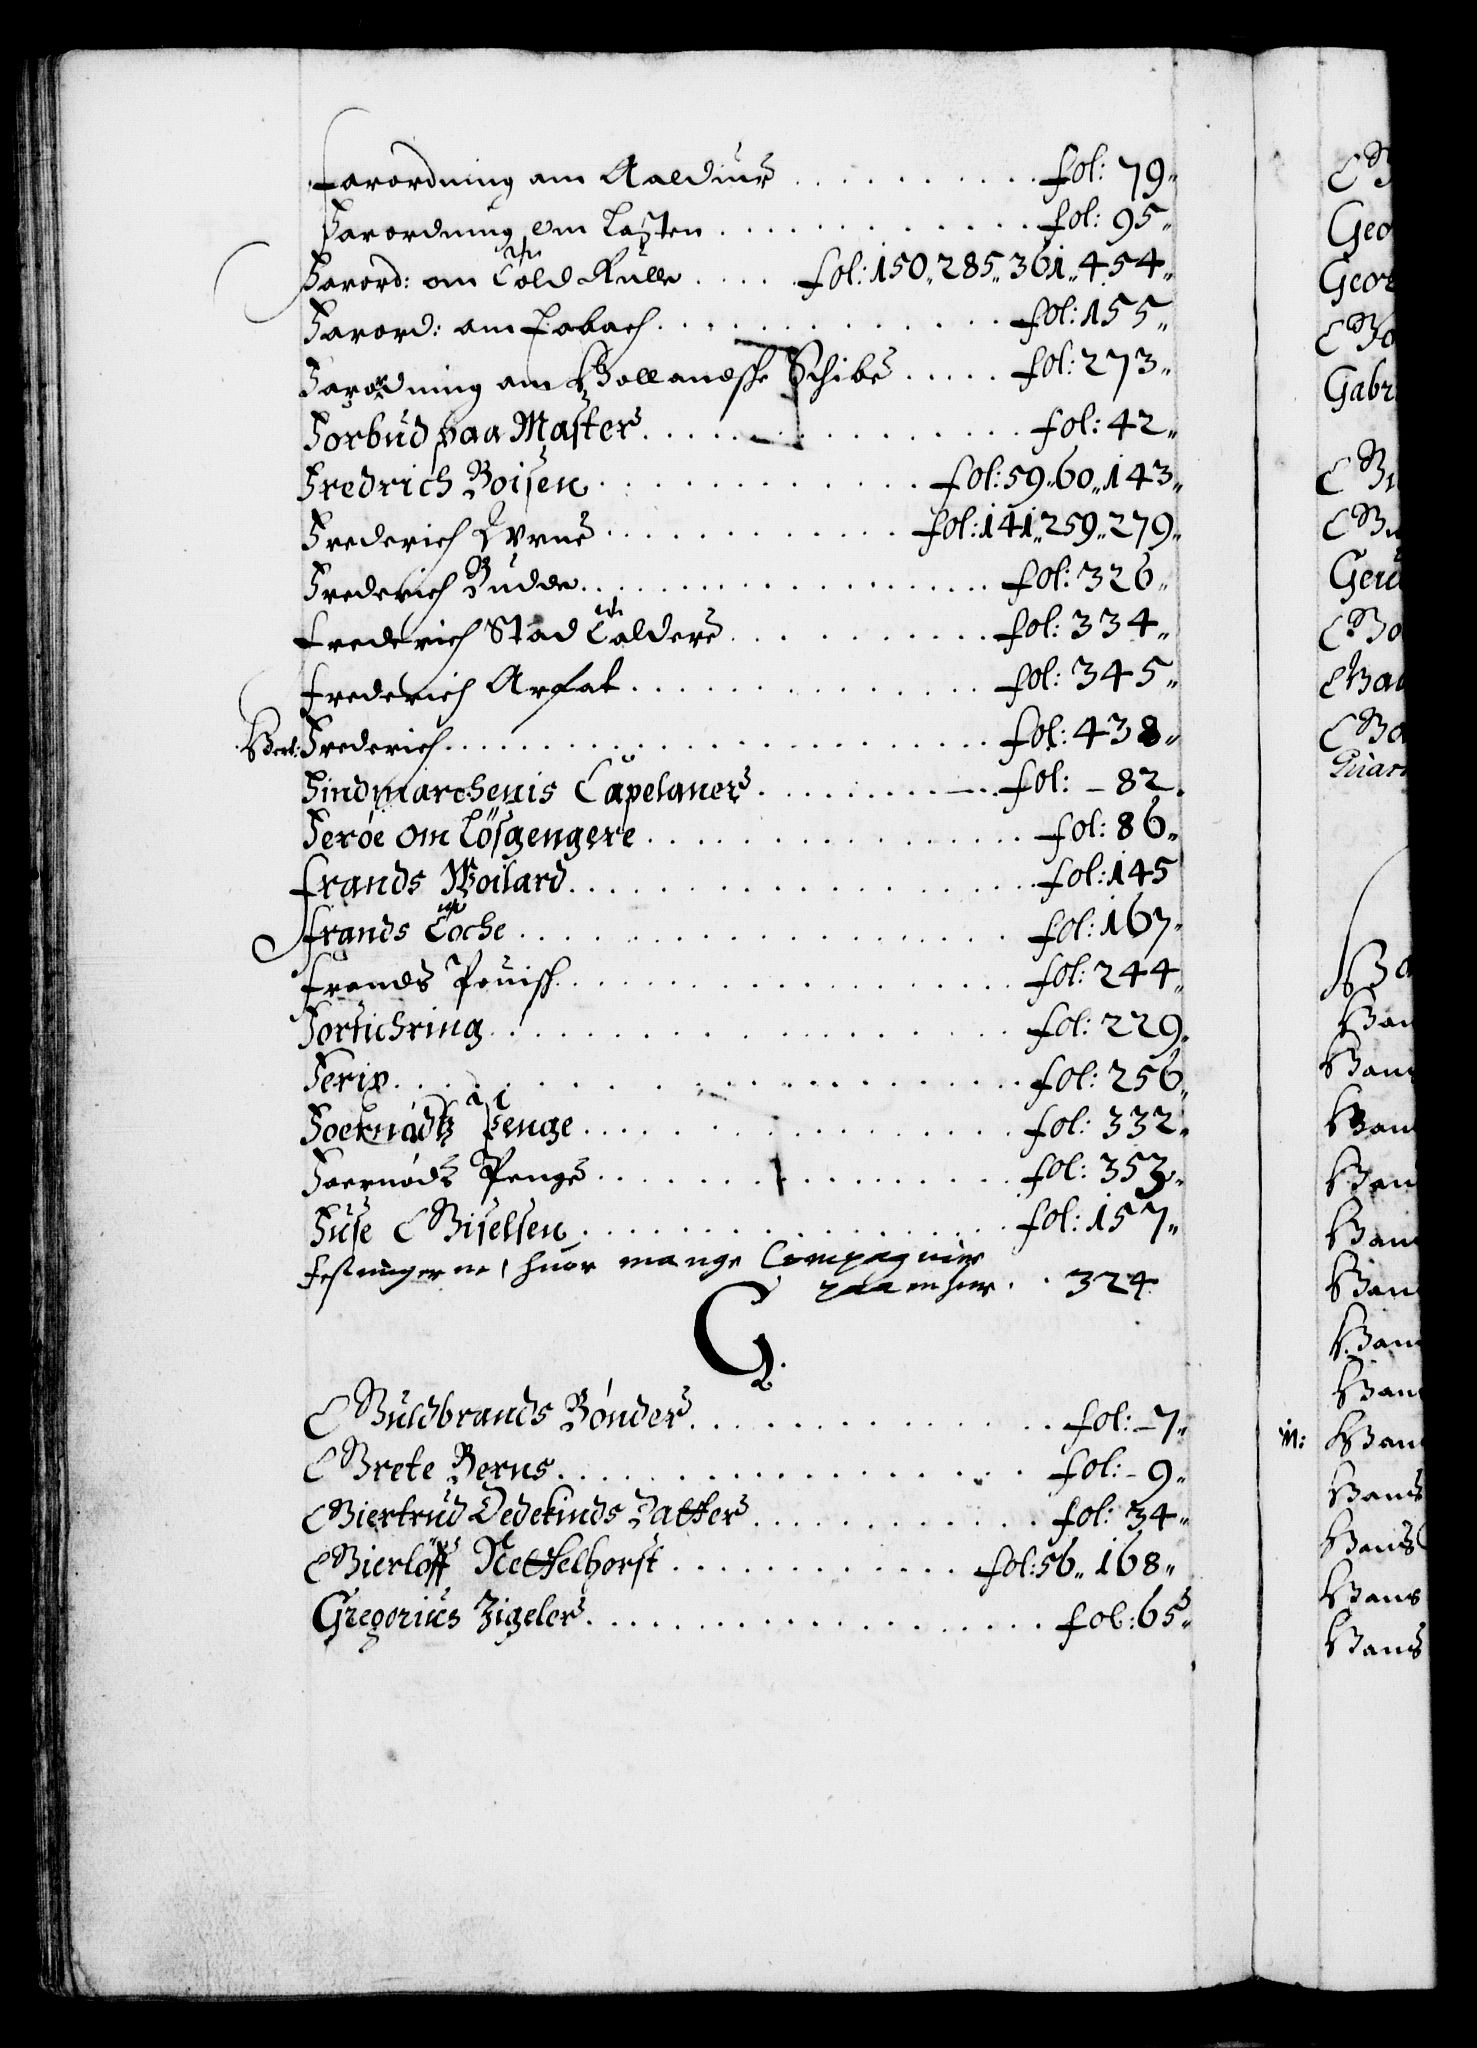 Forordning om Aaldiur . . . . . . . . . . fol: 79„
Forordning om Lasten . . . . . . . . . . . . fol: 95„
Forord: om Told Rulle . . . . . fol: 150„ 285„ 361„ 454„
Forord: om Tobach . . . . . . . . . . . . . fol: 155„
Forordning om Hollandske Schibe . . . . . fol: 273„
Forbud paa Master . . . . . . . . . . . . . . fol: 42„
Fredrich Boisen . . . . . . . . . . . . fol: 59„ 60„ 143„
Frederich Lyrne . . . . . . . . . . . . fol: 141„ 259„ 279„
Frederich Budde . . . . . . . . . . . . . . . fol: 326„
Frederich Stad Tolder . . . . . . . . . . . fol: 334„
Frederich Arfat . . . . . . . . . . . . . . . fol: 345„
Hert: Frederich . . . . . . . . . . . . . . . fol: 438„
Findmarchenis Capelaner . . . . . . . . . fol: – 82.
Feröe om Lösgengere . . . . . . . . . . . . . . fol: 86„
Frands Woilard . . . . . . . . . . . . . . . . fol: 145
Frands Coche . . . . . . . . . . . . . . . . . fol: 167„
Frands . . . . . . . . . . . . . . . . fol: 244„
Forsichring . . . . . . . . . . . . . . . . . fol: 229„
Ferix . . . . . . . . . . . . . . . . . . . . fol: 256„
Foernødtz Penge . . . . . . . . . . . . . . . fol: 332„
Foernøds Penge . . . . . . . . . . . . . . . fol: 353„
Fuse Giselsen . . . . . . . . . . . . . . . fol: 157„
Festningerne, huor mange Compagnier
. . 324
G.
Guldbrands Bønder . . . . . . . . . . . . . fol: – 7„
Grete Berns . . . . . . . . . . . . . . . . . fol: – 9„
Giertrud Dedekinds Datter . . . . . . . . . . fol: 34„
Gierlöff Nettelhorst . . . . . . . . . . . fol: 56„ 168„
Gregorius Zigeler . . . . . . . . . . . . . . . fol: 65„